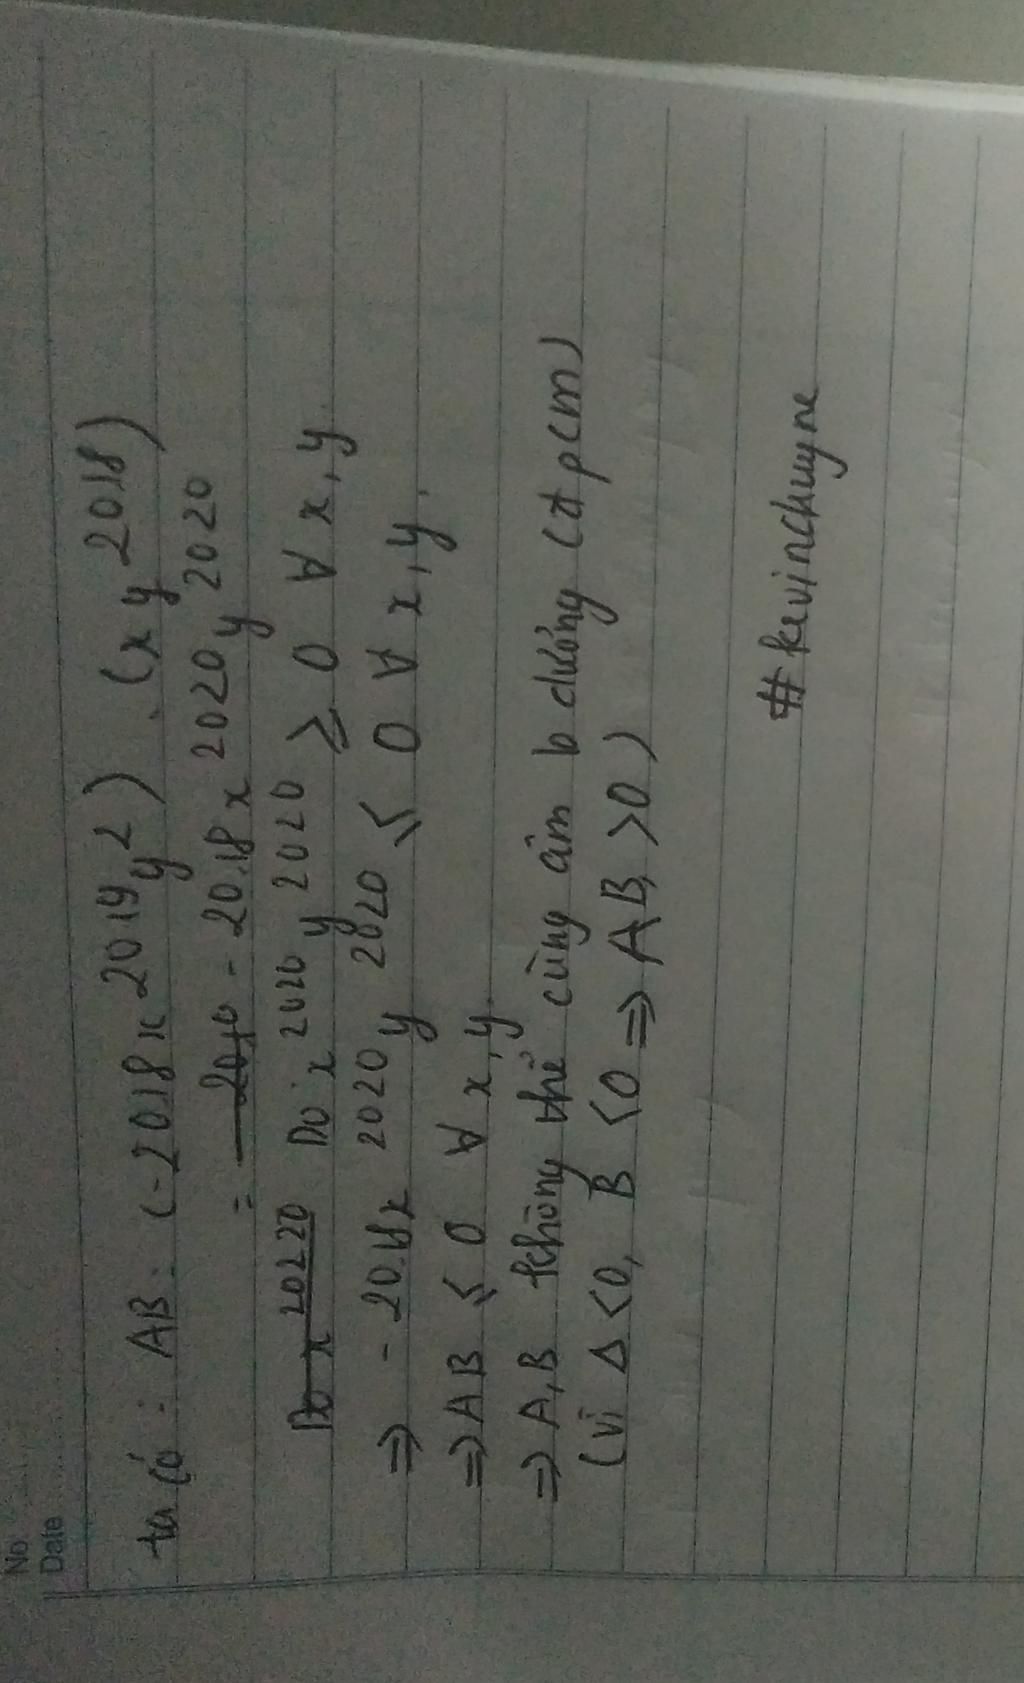 No:
Date
ta có: AB: (-2018x^2019 y^2) . (x y^2018)
= - 2018x^2020 y^2020
Do x^2020 y^2020 ≥ 0 ∀ x, y.
⇒ - 2018x^2020 y^2020 ≤ 0 ∀ x, y.
⇒ AB ≤ 0 ∀ x, y.
⇒ A, B không thể cùng âm b dương (đpcm)
(Vì A <0, B <0 ⇒ AB >0)
# kevinchuyne